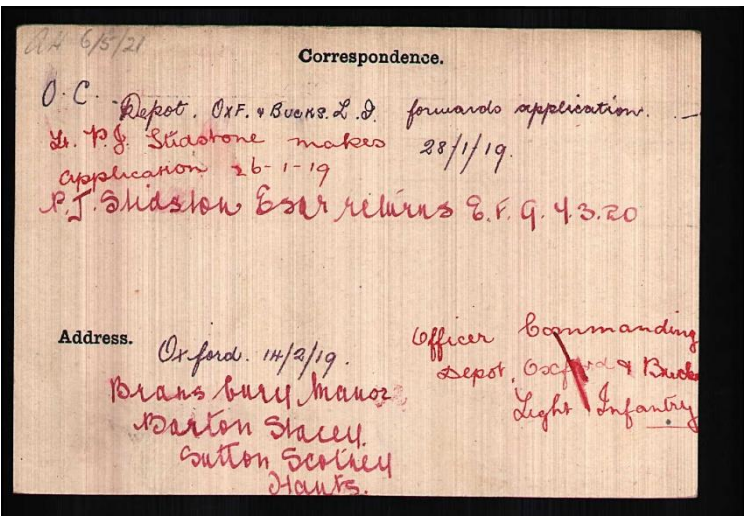 AH 6/5/21
Correspondence.
O.C. Depot. OXF. & BUCKS. L.I. forwards application.
28/1/19.
Lt. P.J. Stidstone makes
application 26-1-19
P.J. Stidston Esqr returns E.F.9. 4.3.20
Address.
Oxford. 14/2/19.
Bransbury Manor
Barton Stacey.
Sutton Scotney
Hants.
Officer Commanding
Depot, Oxford & Bucks
Light Infantry